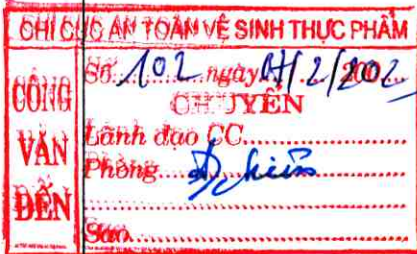 CHI CỤC AN TOÀN VỆ SINH THỰC PHẨM
CÔNG VĂN ĐẾN
Số 102 ngày /2/202
CHUYỂN
Lãnh đạo CC
Phòng
Sao